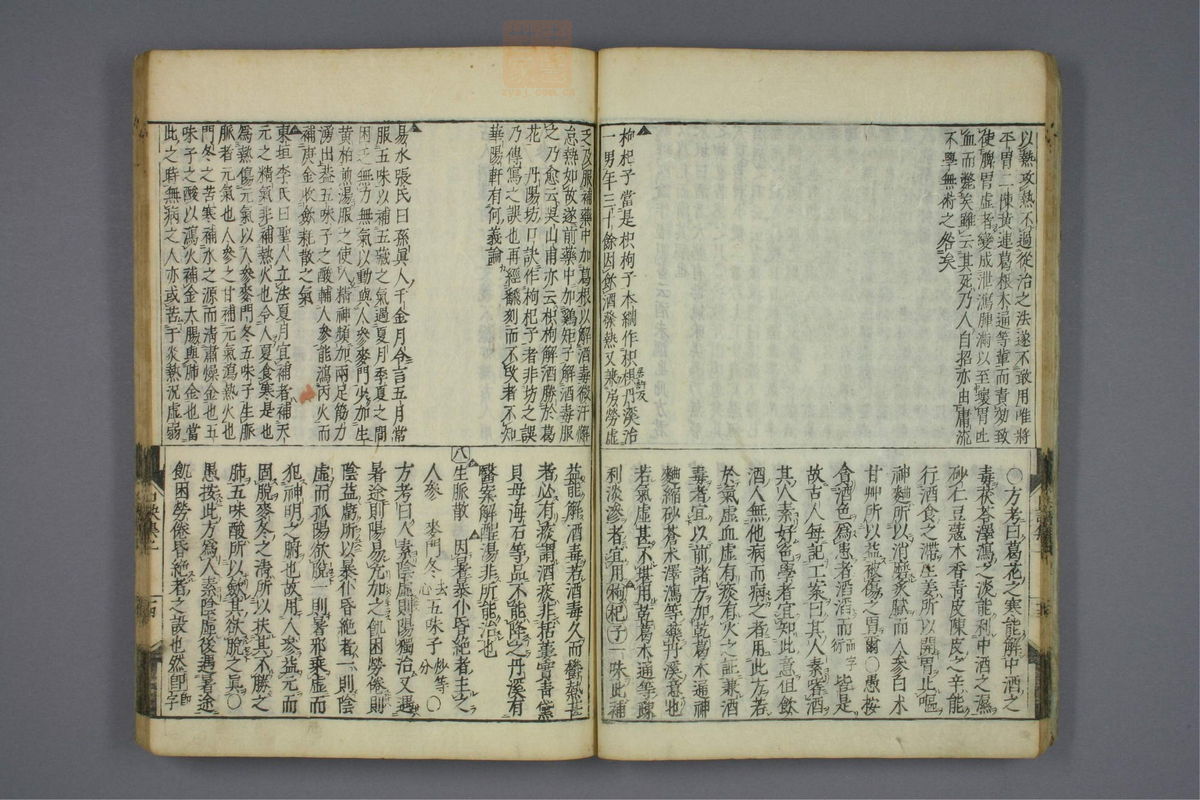 以熱攻熱不過從治之法遂不敢用唯將
平胃二陳黃連葛根木通等輩而責効致
使脾胃虛者變成泄瀉腫滿以至嘔胃吐
血而斃矣雖云其死乃人自招亦由庸流
不學無術之咎矣
枸杞子當是枳枸子本綱作枳椇丹溪治
一男年三十餘因飲酒發熱又兼房勞虛
乏乃服補藥中加葛根以解酒毒微汗懈
怠熱如故遂前藥中加雞矩子解酒毒服
之乃愈云吳山甫亦云枳枸解酒勝於葛
花丹陽坊口訣作枸杞子者非坊之誤
乃傳寫之誤也再經翻刻而不改者不知
華陽軒有何義論
易水張氏曰孫真人千金月令言五月常
服五味以補五藏之氣遇夏月季夏之間
困乏無力無氣以動與人參麥門少加生
黃柏煎湯服之使人精神頓加兩足筋力
湧出蓋五味子之酸輔人參能瀉丙火而
補庚金收斂耗散之氣
東垣李氏曰聖人立法夏月宜補者補天
元之精氣非補熱火也令人夏食寒是也
為熱傷元氣以人參麥門冬五味子生脈
脈者元氣也人參之甘補元氣瀉熱火也
門冬之苦寒補水之源而清肅燥金也五
味子之酸以瀉火補金大腸與肺金也當
此之時無病之人亦或苦于炎熱況虛弱
○方考曰葛花之寒能解中酒之
毒茯苓澤瀉之淡能利中酒之濕
砂仁豆蔻木香青皮陳皮之辛能
行酒食之滯生姜所以開胃止嘔
神麯所以消磨炙膩而人參白朮
甘艸所以益被傷之胃爾○愚按
貪酒色為患者酒酒而而字衍皆是
故古人每記工案曰其人素嗜酒
其人素好色學者宜知此意但飲
酒人無他病而病之者用此方若
於氣虛血虛有痰有火之証兼酒
毒者宜以前諸方加乾葛木通神
麯縮砂蒼朮澤瀉等藥丹溪意也
若氣虛甚不堪用乾葛木通等踈
利淡滲者宜用枸杞子一味此補
益能解酒毒若酒毒久而欝熱甚
者必有痰謂酒痰非栝蔞實青黛
貝母海石等品不能降之丹溪有
醫案解醒湯非所能治也
八生脈散 因暑暴仆昏絕者主之
人參 麥門冬去心 五味子炒等分○
方考曰人素陰虛則陽獨治又遇
暑途則陽易亢加之飢困勞倦則
陰益虧所以暴仆昏絕者一則陰
虛而孤陽欲脫一則暑邪乘虛而
犯神明之腑也故用人參益元而
固脫麥冬之清所以扶其不勝之
肺五味酸所以斂其欲脫之真○
愚按此方為人素陰虛後遇暑途
飢困勞倦昏絕者之設也然即字